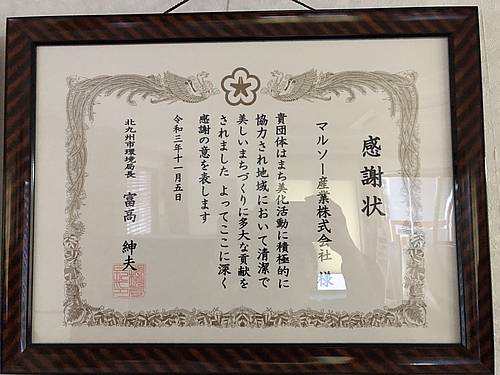 感謝状
マルソー産業株式会社 様
貴団体はまち美化活動に積極的に
協力され地域において清潔で
美しいまちづくりに多大な貢献を
されました よってここに深く
感謝の意を表します
令和三年十一月五日
北九州市環境局長 富髙 紳夫